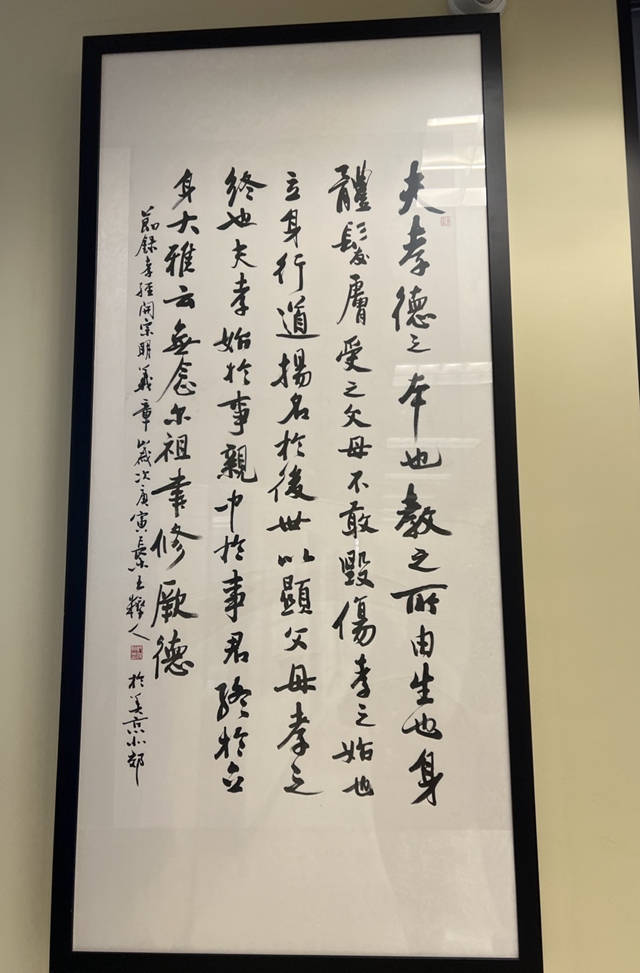 夫孝德之本也教之所由生也身
體髮膚受之父母不敢毀傷孝之始也
立身行道揚名於後世以顯父母孝之
終也夫孝始於事親中於事君終於立
身大雅云無念尔祖聿修厥德
節錄孝經開宗明義章歲次庚寅人於美京小邨